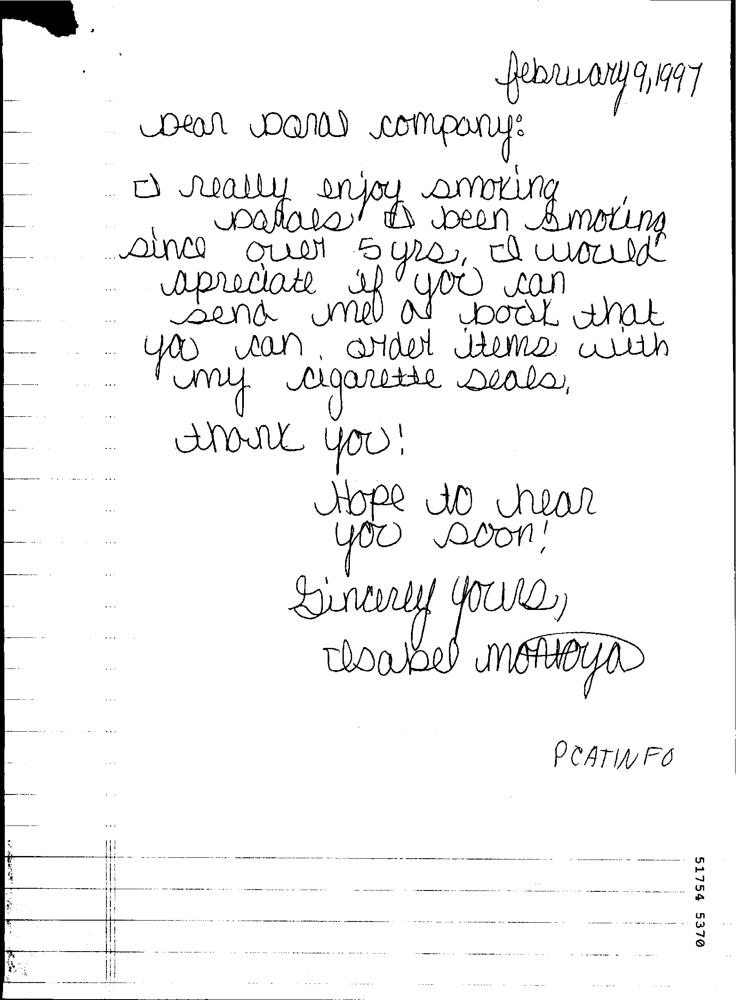 february 9, 1997
Dear Doral company:
I really enjoy smoking
Dorals I been smoking
since over 5 yrs, I would
apreciate if you can
send me a book that
you can order items with
my cigarette seals,
thank you!
Hope to hear
you soon!
Sincerely yours,
Isabel montoya
PCATINFO
51754 5370